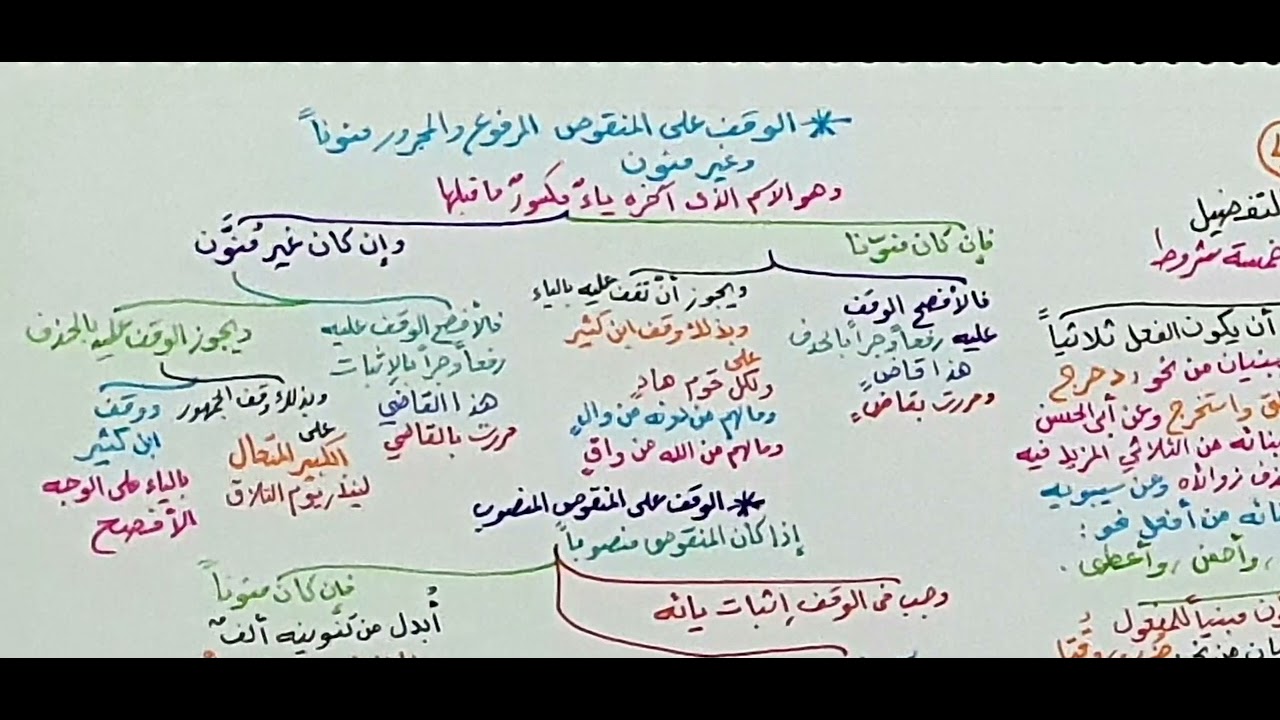 * الوقف على المنقوص المرفوع والمجرور منوناً
وغير منون
وهو الاسم الذى آخره ياءٌ مكسورٌ ما قبلها
فإن كان منوّنا
فالأفصح الوقف
عليه رفعاً وجراً بالحذف
هذا قاضٍ
ومررت بقاضٍ
ويجوز أن تقف عليه بالياء
وبذلك وقف ابن كثير
على
ولكل قوم هادٍ
ومالهم من دونه من والٍ
ومالهم من الله من واقٍ
وإن كان غير مُنوَّن
فالأفصح الوقف عليه
رفعاً وجراً بالإثبات
هذا القاضي
مررت بالقاضي
ويجوز الوقف عليه بالحذف
وبذلك وقف الجمهور
على
الكبير المتعال
لينذر يوم التلاق
ووقف
ابن كثير
بالياء على الوجه
الأفصح
* الوقف على المنقوص المنصوب
إذا كان المنقوص منصوباً
وجب فى الوقف إثبات يائه
فإن كان منوناً
أُبدل من تنوينه ألفٌ
لتفضيل
خمسة شروط
أن يكون الفعل ثلاثياً
يبنيان من نحو: دحرج
واستخرج وعن أبى الحسن
بنائه من الثلاثي المزيد فيه
حذف زوائده وعن سيبويه
بنائه من أفعل نحو:
، وأحسن ، وأعطى .
مبنياً للمفعول